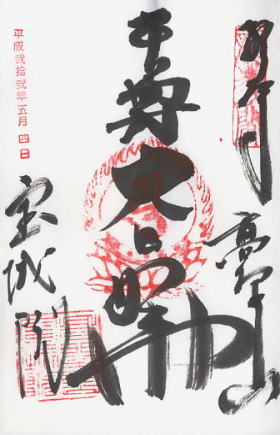 奉拝
本尊大日如来
高野山
宝城院
平成弐拾弐年五月四日